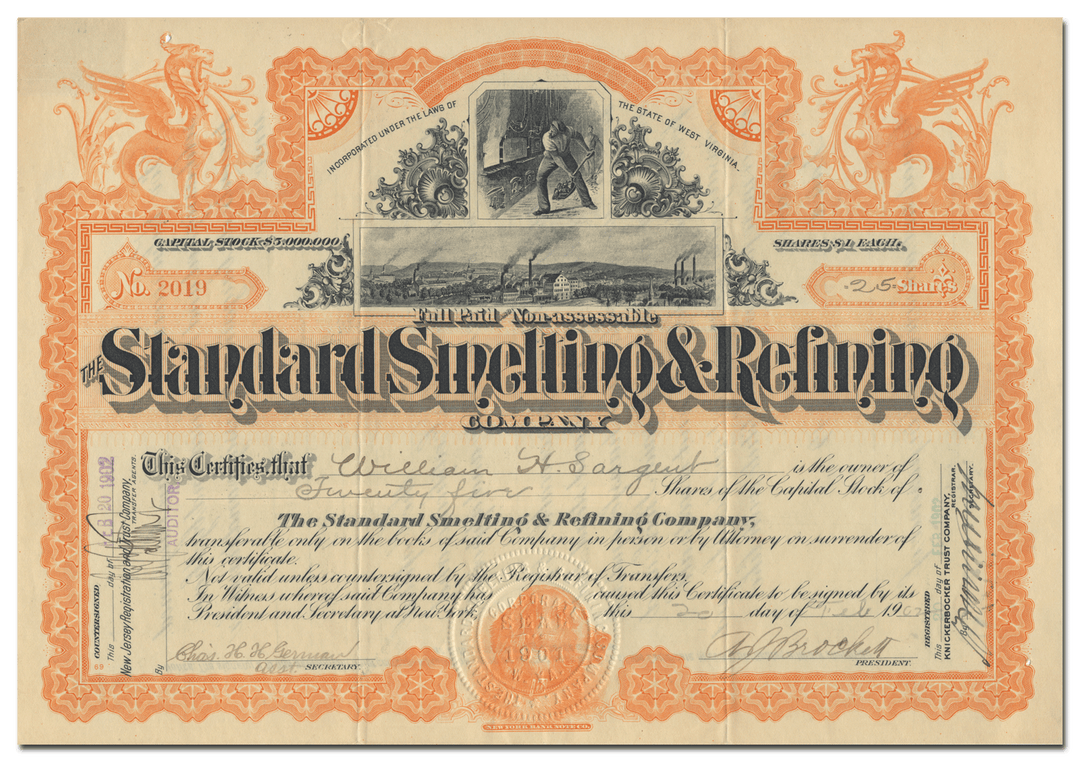 INCORPORATED UNDER THE LAWS OF THE STATE OF WEST VIRGINIA.
CAPITAL STOCK $5,000,000.
SHARES $1 EACH.
No. 2019
25 Shares
Full Paid Non-assessable
THE Standard Smelting & Refining
COMPANY
This Certifies that William H. Sargent is the owner of
Twenty five Shares of the Capital Stock of
The Standard Smelting & Refining Company,
transferable only on the books of said Company in person or by Attorney on surrender of
this certificate.
Not valid unless countersigned by the Registrar of Transfers.
In Witness whereof said Company has caused this Certificate to be signed by its
President and Secretary at New York this 20 day of Feb 190
Chas. H. H. German
asst SECRETARY.
Brockett
PRESIDENT.
COUNTERSIGNED
This day of FEB 20 1902
New Jersey Registration and Trust Company,
TRANSFER AGENTS.
By
AUDITOR
REGISTERED
This day of
KNICKERBOCKER TRUST COMPANY,
REGISTRAR.
By SECRETARY.
69
NEW YORK BANK NOTE CO.